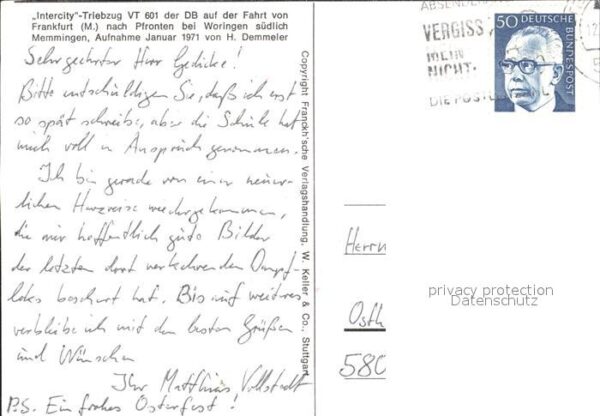 „Intercity"-Triebzug VT 601 der DB auf der Fahrt von
Frankfurt (M.) nach Pfronten bei Woringen südlich
Memmingen, Aufnahme Januar 1971 von H. Demmeler
Sehr geehrter Herr Gedicke!
Bitte entschuldigen Sie, daß ich erst
so spät schreibe, aber die Schule hat
mich voll in Anspruch genommen.
Ich bin gerade von einer neuer-
lichen Harzreise wiedergekommen,
die mir hoffentlich gute Bilder
der letzten dort verkehrenden Dampf-
loks beschert hat. Bis auf weiteres
verbleibe ich mit den besten Grüßen
und Wünschen
Ihr Matthias Vollstedt
P.S. Ein frohes Osterfest!
Copyright Franckh'sche Verlagshandlung, W. Keller & Co., Stuttgart
VERGISS
MEIN
NICHT
DIE POST
50 DEUTSCHE
BUNDESPOST
Herrn
Osth
580
privacy protection
Datenschutz